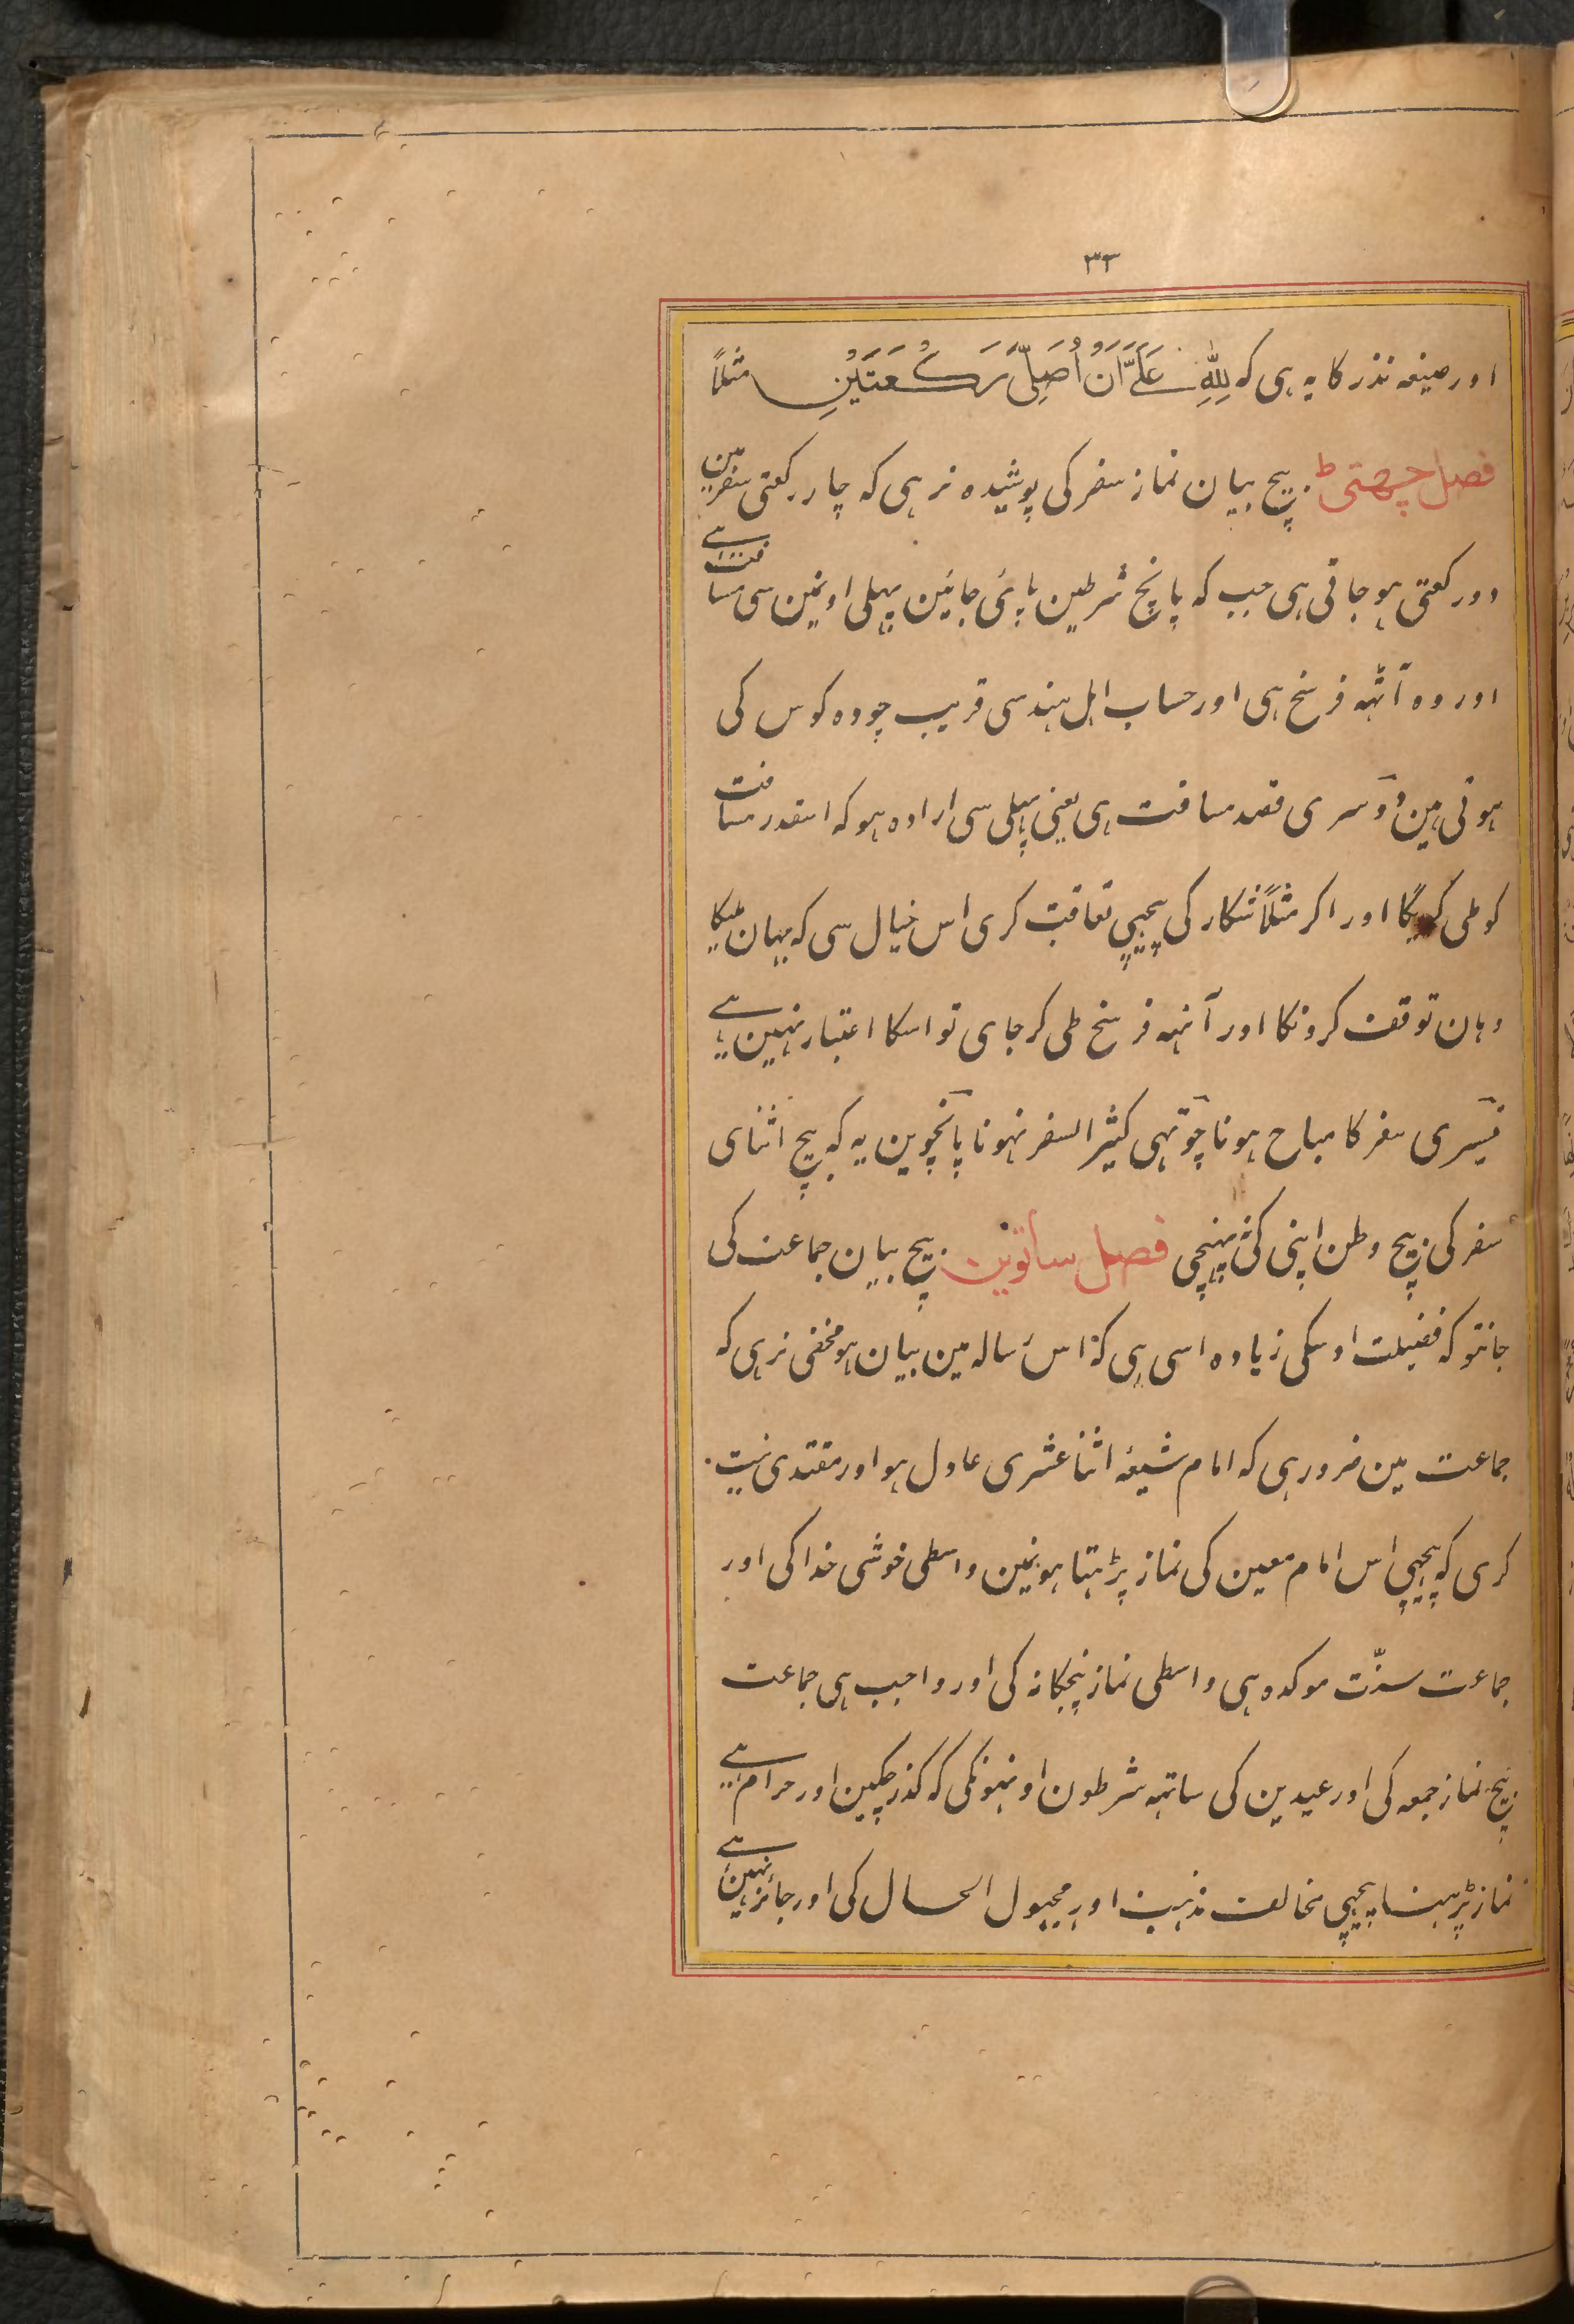 ۳۳
اور صیغہ نذر کا یہ ہی کہ لِلّٰهِ عَلَیَّ اَنْ اُصَلِّیَ رَکْعَتَیْنِ مثلاً
فصل چھٹی بیچ بیان نماز سفر کی پوشیدہ نرہی کہ چار رکعتی سفر مین
دو رکعتی ہو جاتی ہی جب کہ پانچ شرطین پائی جائین پہلی اونمین سی مسافت ہے
اور وہ آٹہہ فرسخ ہی اور حساب اہل ہند سی قریب چودہ کوس کی
ہوتی ہین دوسری قصد مسافت ہی یعنی پہلی سی ارادہ ہو کہ اسقدر مسافت
کو طی کریگا اور اکر مثلاً شکار کی پیچہی تعاقب کری اس خیال سی کہ یہان ملیگا
وہان توقف کرونکا اور آٹہہ فرسخ طی کر جای تو اسکا اعتبار نہین ہے
تیسری سفر کا مباح ہونا چوتہی کثیر السفر نہونا پانچوین یہ کہ بیچ اثنای
سفر کی بیچ وطن اپنی کی نپہنچی فصل ساتوین بیچ بیان جماعت کی
جانتو کہ فضیلت اوسکی زیادہ اسی ہی کہ اس رسالہ مین بیان ہو مخفی نرہی کہ
جماعت مین ضرور ہی کہ امام شیعہ اثنا عشری عادل ہو اور مقتدی نیت
کری کہ پیچہی اس امام معین کی نماز پڑہتا ہونمین واسطی خوشی خدا کی اور
جماعت سنّت موکدہ ہی واسطی نماز پنجکانہ کی اور واجب ہی جماعت
بیچ نماز جمعہ کی اور عیدین کی ساتہہ شرطون اونہونکی کہ کذر چکین اور حرام ہے
نماز پڑہنا پیچہی مخالف مذہب اور مجہول الحال کی اور جائز نہین ہے